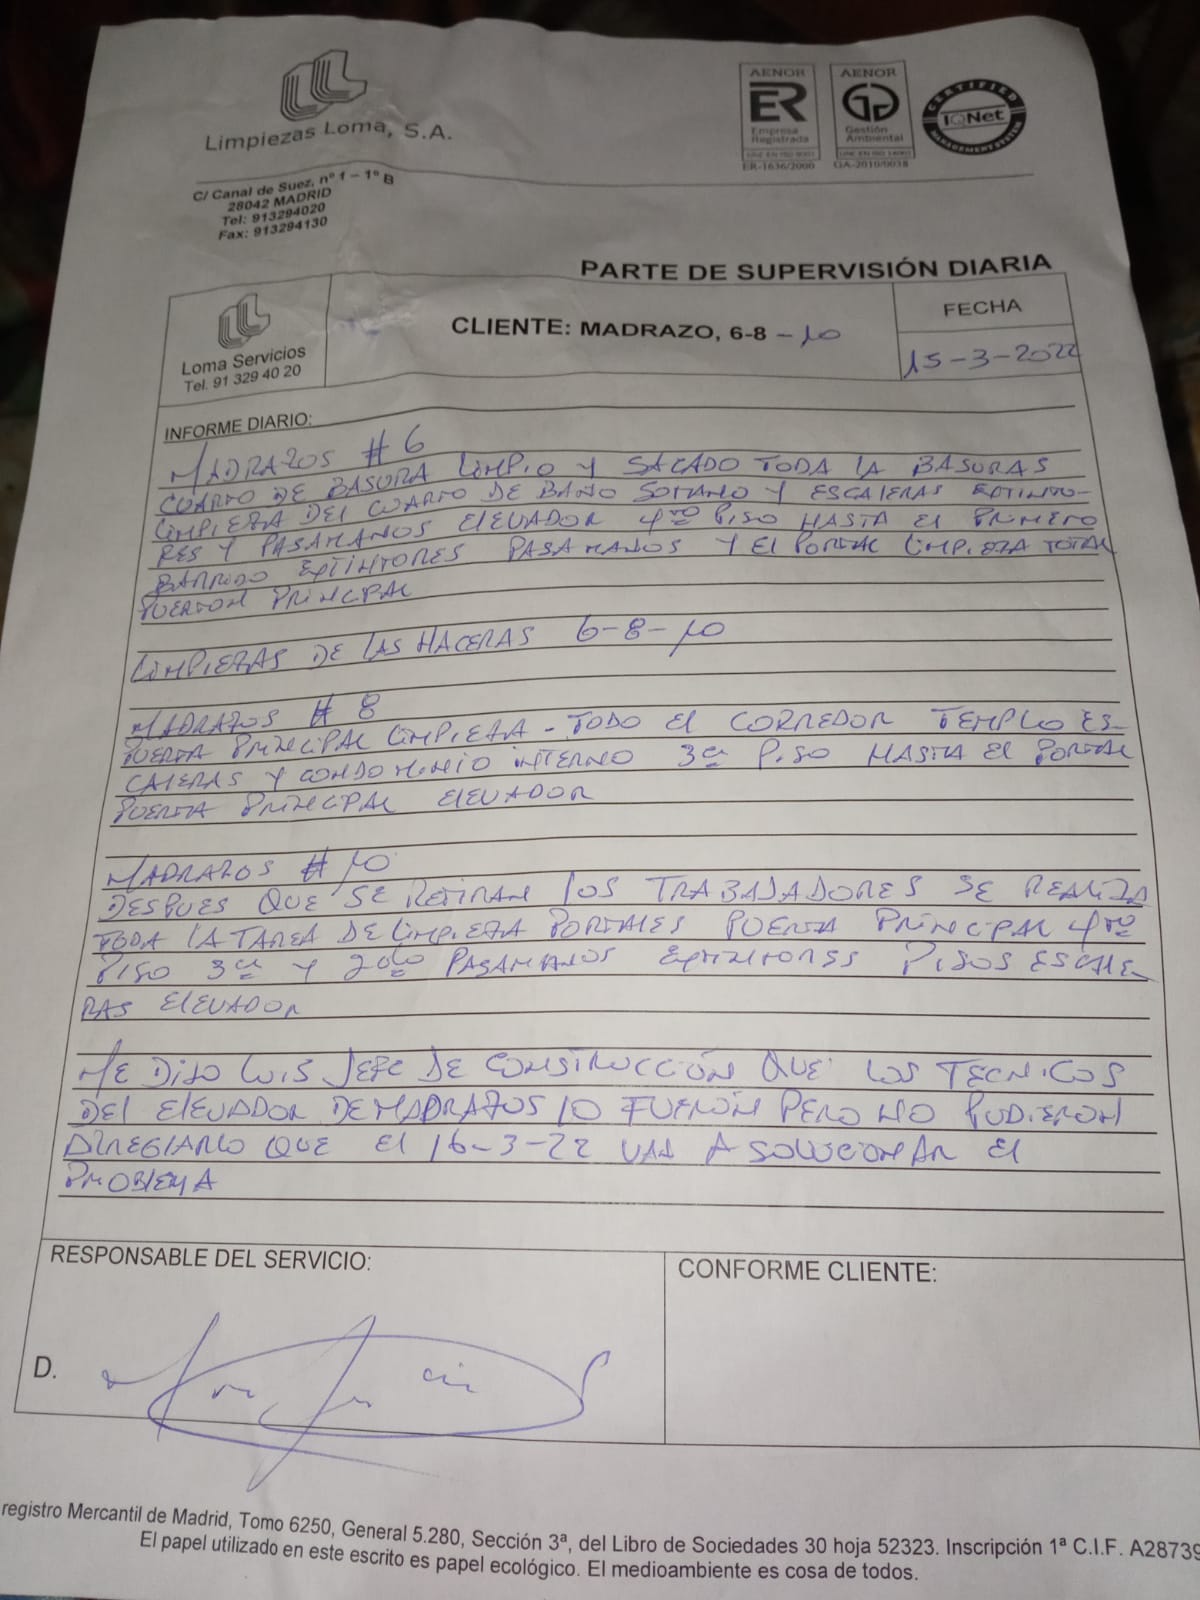 Limpiezas Loma, S.A.
C/ Canal de Suez, nº 1 – 1º B
28042 MADRID
Tel: 913294020
Fax: 913294130
AENOR
ER
Empresa
Registrada
ER-1636/2000
AENOR
Gestión
Ambiental
GA-2010/0038
CERTIFIED
IQNet
MANAGEMENT SYSTEM
PARTE DE SUPERVISIÓN DIARIA
Loma Servicios
Tel. 91 329 40 20
CLIENTE: MADRAZO, 6-8 -10
FECHA
15-3-2022
INFORME DIARIO:
MADRAZOS # 6
CUARTO DE BASURA LIMPIO Y SACADO TODA LA BASURAS
LIMPIEZA DEL CUARTO DE BAÑO SOTANO Y ESCALERAS EXTINTO-
RES Y PASAMANOS ELEVADOR 4TO PISO HASTA EL PRIMERO
BARRIDO EXTINTORES PASAMANOS Y EL PORTAL LIMPIEZA TOTAL
PUERTON PRINCIPAL
LIMPIEZAS DE LAS HACERAS 6-8-10
MADRAZOS # 8
PUERTA PRINCIPAL LIMPIEZA - TODO EL CORREDOR TEMPLO ES-
CALERAS Y CONDOMINIO INTERNO 3ER PISO HASTA EL PORTAL
PUERTA PRINCIPAL ELEVADOR
MADRAZOS # 10
DESPUES QUE SE RETIRAN LOS TRABAJADORES SE REALIZA
TODA LA TAREA DE LIMPIEZA PORTALES PUERTA PRINCIPAL 4TO
PISO 3ER Y 2DO PASAMANOS EXTINTORES PISOS ESCALE-
RAS ELEVADOR
ME DIJO LUIS JEFE DE CONSTRUCCIÓN QUE LOS TECNICOS
DEL ELEVADOR DE MADRAZOS 10 FUERON PERO NO PUDIERON
ARREGLARLO QUE EL 16-3-22 VAN A SOLUCIONAR EL
PROBLEMA
RESPONSABLE DEL SERVICIO:
CONFORME CLIENTE:
D.
registro Mercantil de Madrid, Tomo 6250, General 5.280, Sección 3ª, del Libro de Sociedades 30 hoja 52323. Inscripción 1ª C.I.F. A28739
El papel utilizado en este escrito es papel ecológico. El medioambiente es cosa de todos.